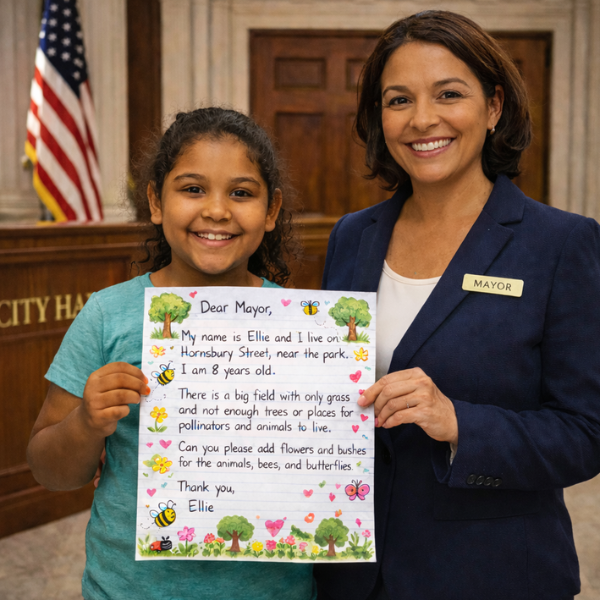 CITY HA
MAYOR
Dear Mayor,
My name is Ellie and I live on
Hornsbury Street, near the park.
I am 8 years old.
There is a big field with only grass
and not enough trees or places for
pollinators and animals to live.
Can you please add flowers and bushes
for the animals, bees, and butterflies.
Thank you,
Ellie